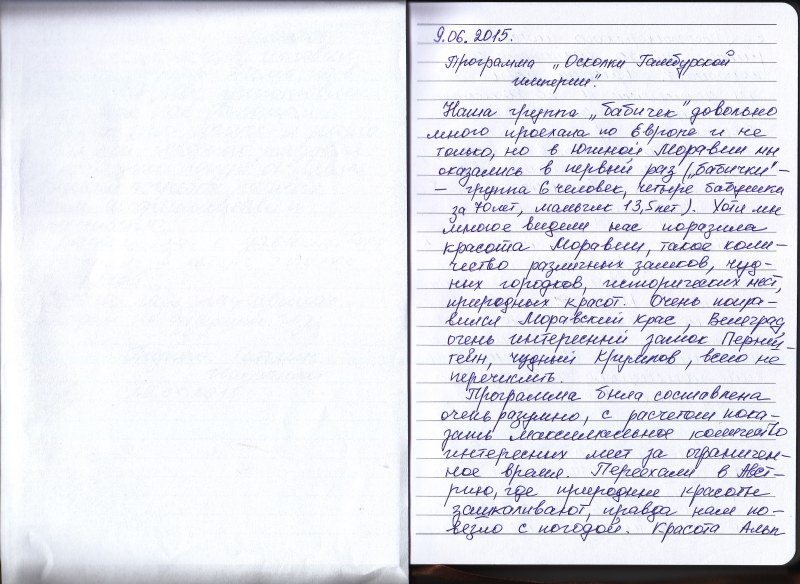 9.06.2015.
Программа „Осколки Гамбургской
империи".
Наша группа „бабичек" довольно
много проехала по Европе и не
только, но в Южной Моравии мы
оказались в первый раз („бабички" –
– группа 6 человек, четыре бабушки
за 70 лет, мальчик 13,5 лет). Хотя мы
многое видели нас поразила
красота Моравии, такое коли-
чество различных замков, чуд-
ных городков, исторических мест,
природных красот. Очень понра-
вился Моравский Крас, Велеград,
очень интересный замок Перн-
тейн, чудный Крумлов, всего не
перечислить.
Программа была составлена
очень разумно, с расчетом пока-
зать максимальное количество
интересных мест за ограничен-
ное время. Переехали в Авст-
рию, где природные красоты
зашкаливают, правда нам по-
везло с погодой. Красота Альп